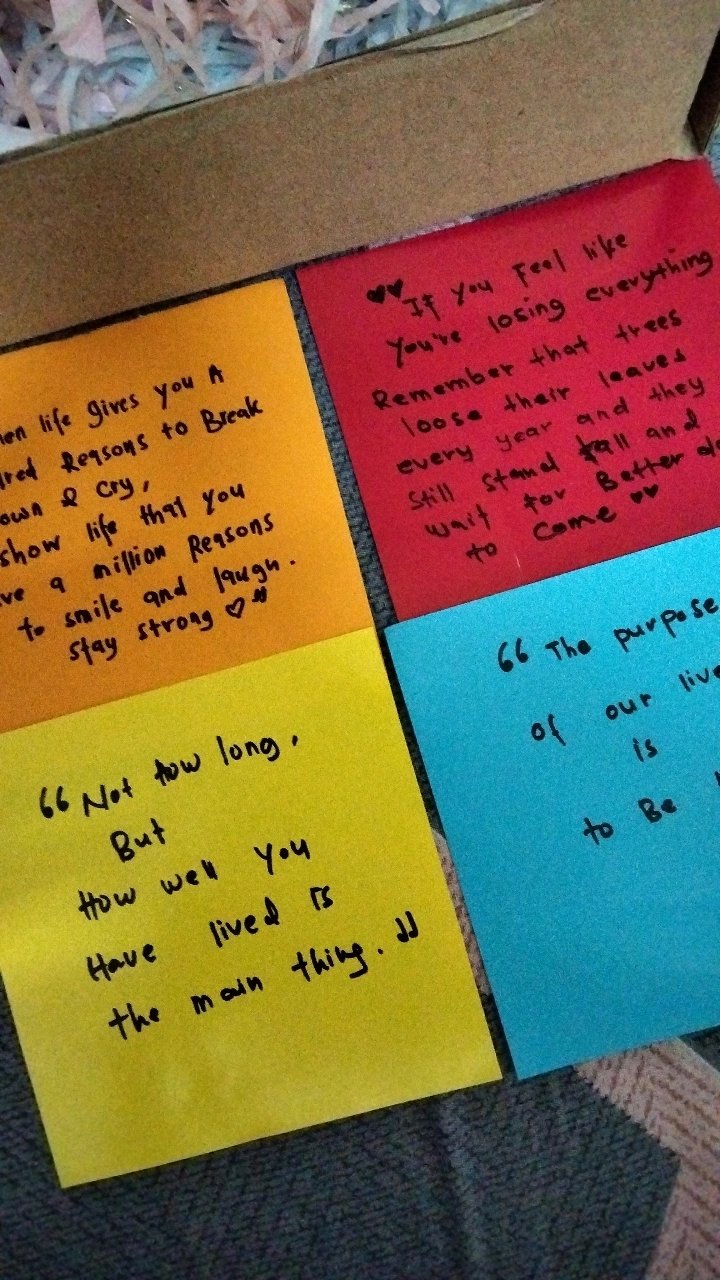 life gives you A
Reasons to Break
& Cry,
show life that you
a million Reasons
to smile and laugh.
stay strong ♡ "
♥♥ If you Feel like
You're losing everything
Remember that trees
loose their leaves
every year and they
still stand tall and
wait for Better
to Come ♥♥
“ Not how long,
But
How well you
Have lived is
the main thing. ”
“ The purpose
of our
is
to Be